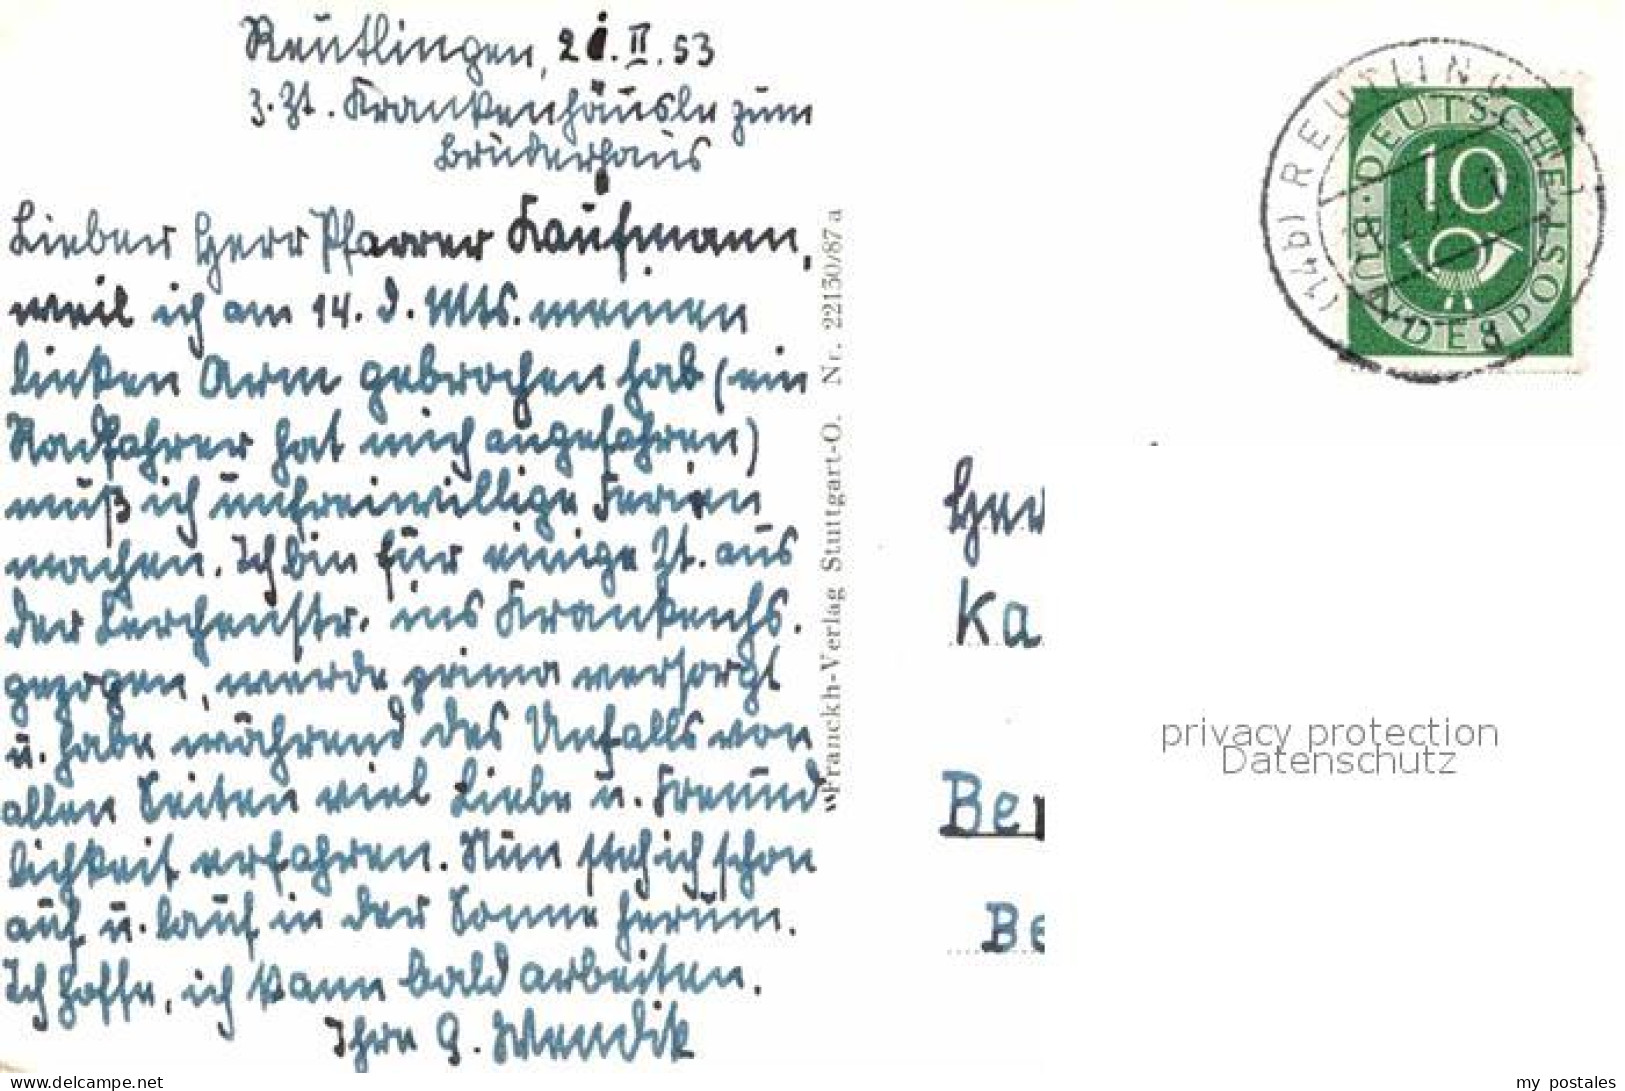 Reutlingen, 21.II.53
z.Zt. Krankenhäusle zum
Bruderhaus
Lieber Herr Pfarrer Kaufmann,
weil ich am 14. d. Mts. meinen
linken Arm gebrochen hab (ein
Radfahrer hat mich angefahren)
muß ich unfreiwillige Ferien
machen. Ich bin für einige Zt. aus
der Lerchenstr. ins Krankenhs.
gezogen, werde prima versorgt
u. habe während des Unfalls von
allen Seiten viel Liebe u. Freund
lichkeit erfahren. Nun steh ich schon
auf u. lauf in der Sonne herum.
Ich hoffe, ich kann bald arbeiten.
Ihre G. Wendik
Franckh-Verlag Stuttgart-O. Nr. 22130/87a
(14b) REUTLINGEN
DEUTSCHE BUNDESPOST
10
Her
Ka
Be
Be
privacy protection
Datenschutz
delcampe.net
my_postales